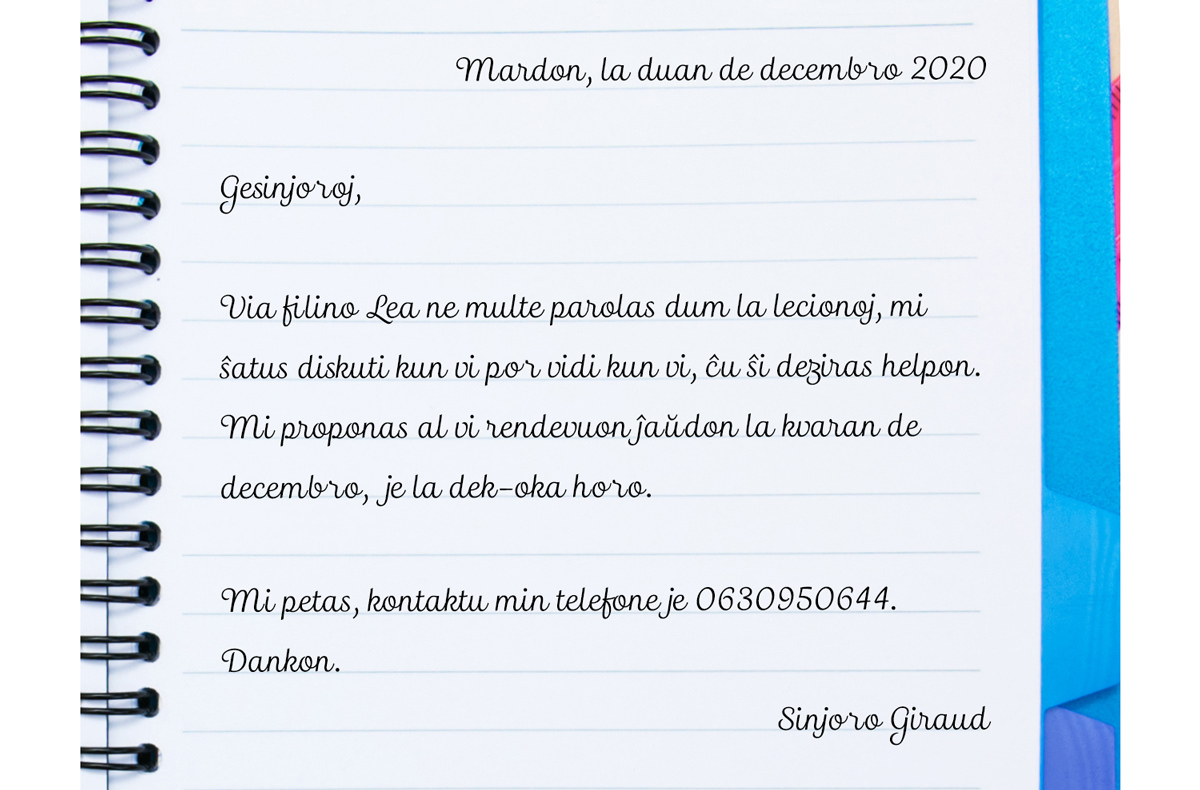 Mardon, la duan de decembro 2020
Gesinjoroj,
Via filino Lea ne multe parolas dum la lecionoj, mi
ŝatus diskuti kun vi por vidi kun vi, ĉu ŝi deziras helpon.
Mi proponas al vi rendevuon ĵaŭdon la kvaran de
decembro, je la dek-oka horo.
Mi petas, kontaktu min telefone je 0630950644.
Dankon.
Sinjoro Giraud